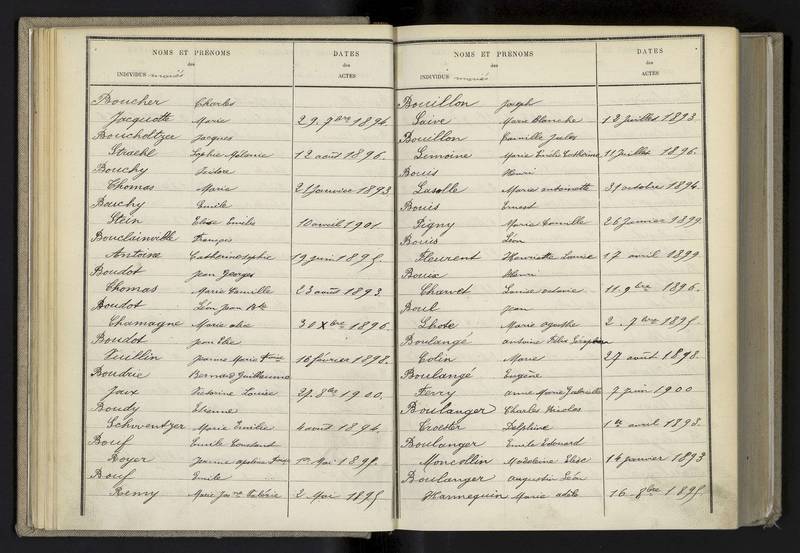 NOMS ET PRÉNOMS
des
INDIVIDUS mariés
DATES
des
ACTES
Boucher Charles
Jacquotte Marie 29. 7bre 1894.
Boucholtzer Jacques
Straehl Sophie Mélanie 12 août 1896.
Bouchy Isidore
Thomas Marie 21 Janvier 1893
Bouchy Emile
Stein Elise Emilie 10 avril 1901
Bouclainville François
Antoine Catherine Sophie 19 juin 1895.
Boudot Jean Georges
Thomas Marie Camille 23 août 1893.
Boudot Léon Jean Bte
Chamagne Marie alice 30 Xbre 1896.
Boudot Jean Elie
Vuillin Jeanne Marie 16 février 1898.
Boudrie Bernard Guillaume
Joux Victorine Louise 27. 8bre 1900.
Boudy Etienne
Schwentzer Marie Emilie 4 août 1894.
Bouf Emile Constant
Royer Jeanne 1er Mai 1895.
Bouf Emile
Remy Marie Valérie 2 Mai 1895
NOMS ET PRÉNOMS
des
INDIVIDUS mariés
DATES
des
ACTES
Bouillon Joseph
Saive Marie Blanche 12 Juillet 1893.
Bouillon Camille Jules
Lemoine Marie Emilie Catherine 11 Juillet 1896.
Bouis Henri
Lasolle Marie antoinette 31 octobre 1894.
Bouis Ernest
Pigny Marie Camille 26 Janvier 1899
Bouis Léon
Fleurent Henriette Louise 17 avril 1899
Bouix Henri
Charvet Louise 11. 9bre 1896.
Boul Jean
Lhote Marie agathe 2. 7bre 1895.
Boulangé antoine Félix
Colin Marie 27 août 1898.
Boulangé Eugène
Ferry anne Marie Gabrielle 7 Juin 1900
Boulanger Charles Nicolas
Crosser Delphine 1er avril 1893.
Boulanger Emile Edouard
Moncollin Madeleine Elise 14 janvier 1893
Boulanger augustin Léon
Hannequin Marie adèle 16. 8bre 1895